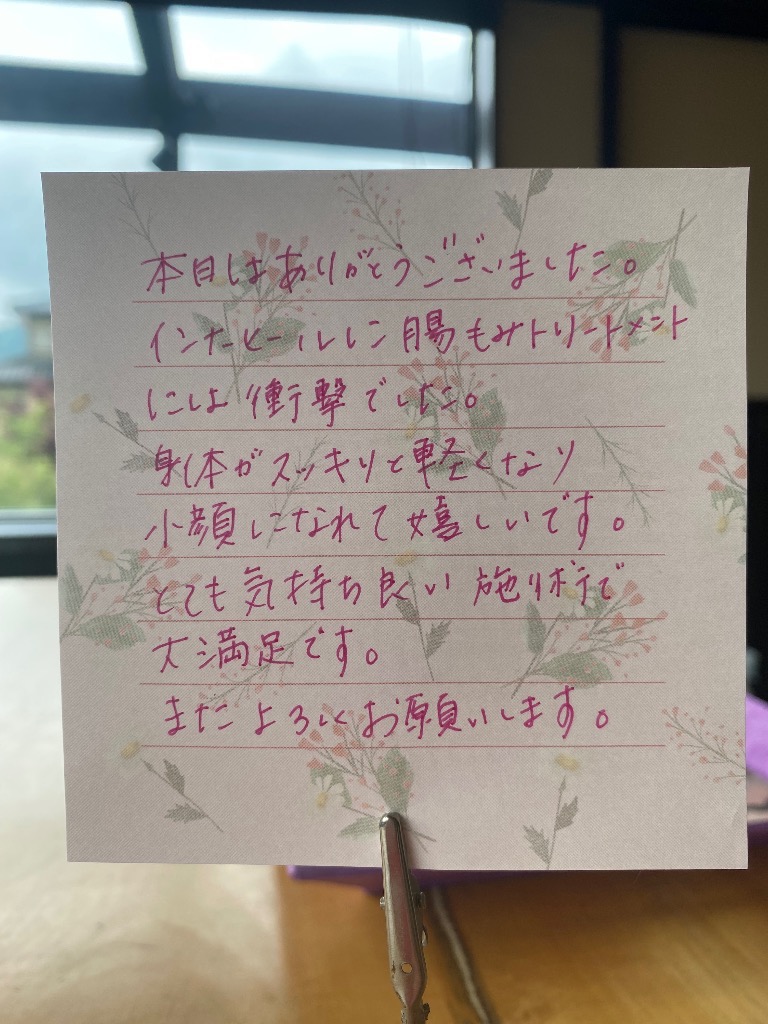 本日はありがとうございました。
インナーヒールレン腸もみトリートメント
には衝撃でした。
身体がスッキリと軽くなり
小顔になれて嬉しいです。
とても気持ち良い施術で
大満足です。
またよろしくお願いします。